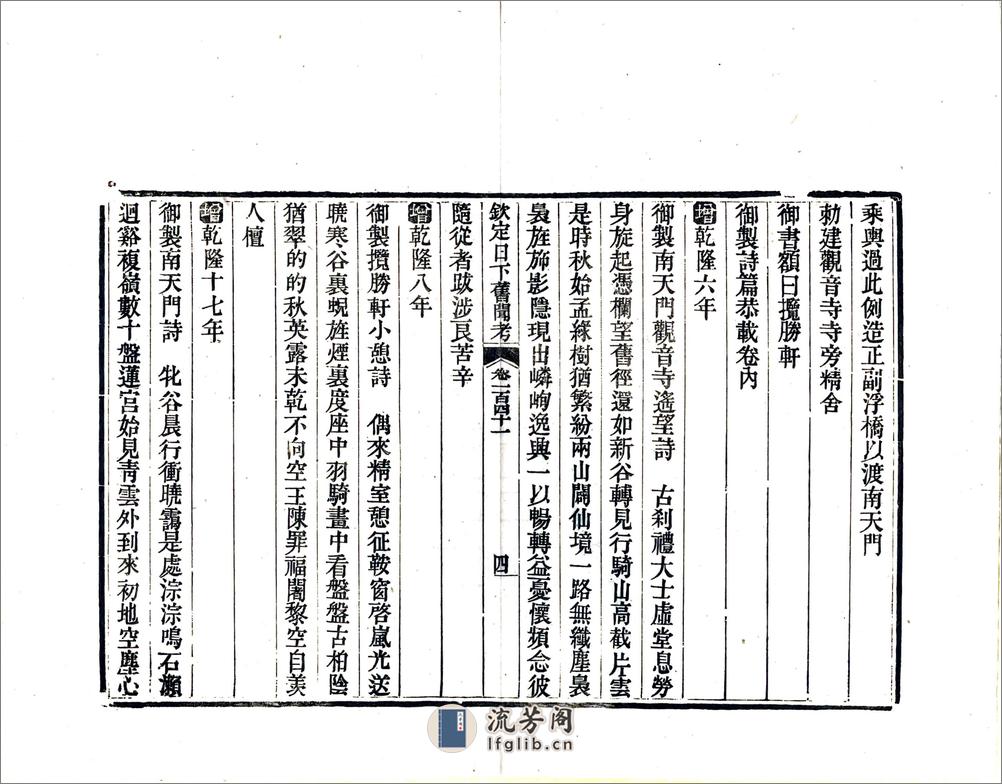 乘輿過此例造正副浮橋以渡南天門
勅建觀音寺寺旁精舍
御書額曰攬勝軒
御製詩篇恭載卷內
增乾隆六年
御製南天門觀音寺遙望詩　古刹禮大士虛堂息勞
身旋起憑欄望舊徑還如新谷轉見行騎山高截片雲
是時秋始孟綠樹猶繁紛兩山闢仙境一路無纖塵裊
裊旌旆影隱現出嶙峋逸興一以暢轉益憂懷頻念彼
欽定日下舊聞考　卷一百四十一　四
隨從者跋涉良苦辛
增乾隆八年
御製攬勝軒小憩詩　偶來精室憩征鞍窗啓嵐光送
曉寒谷裏蜺旌煙裏度座中羽騎畫中看盤盤古柏陰
猶翠的的秋英露未乾不向空王陳罪福闍黎空自美
人檀
增乾隆十七年
御製南天門詩　牝谷晨行衝曉靄是處淙淙鳴石瀨
迴谿複嶺數十盤蓮宮始見靑雲外到來初地空塵心
流芳阁
lfglib.cn